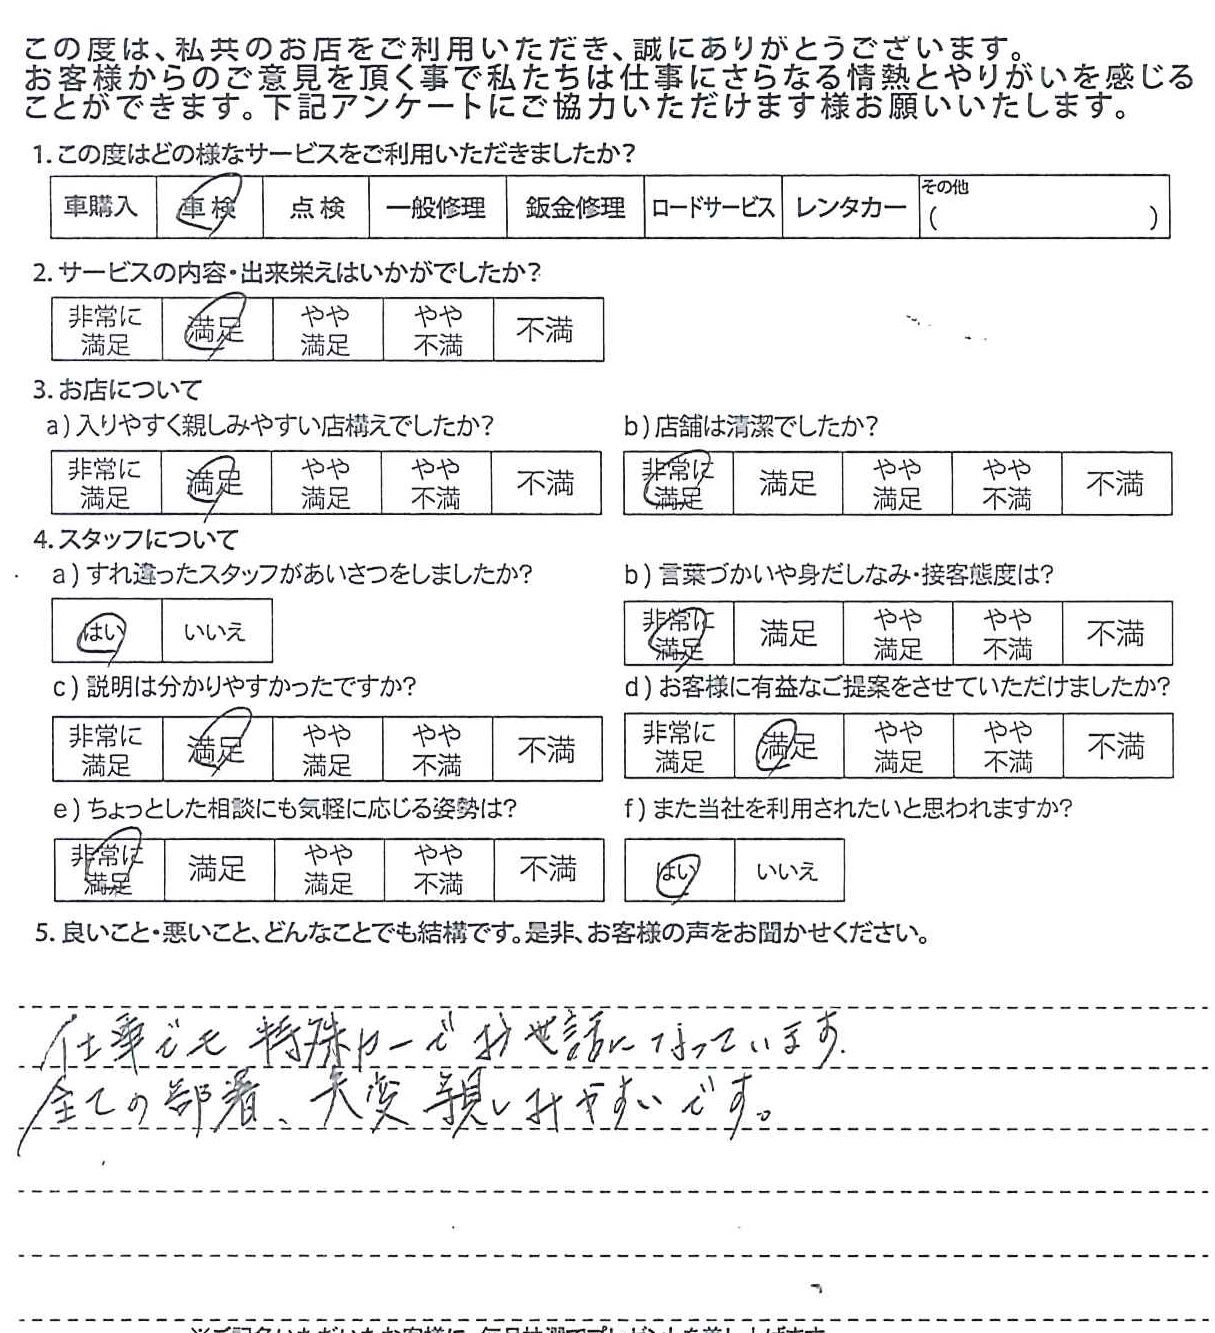 この度は、私共のお店をご利用いただき、誠にありがとうございます。
お客様からのご意見を頂く事で私たちは仕事にさらなる情熱とやりがいを感じる
ことができます。下記アンケートにご協力いただけます様お願いいたします。
1.この度はどの様なサービスをご利用いただきましたか?
車購入 車検 点検 一般修理 鈑金修理 ロードサービス レンタカー その他
( )
2.サービスの内容・出来栄えはいかがでしたか?
非常に満足 満足 やや満足 やや不満 不満
3.お店について
a)入りやすく親しみやすい店構えでしたか? b)店舗は清潔でしたか?
非常に満足 満足 やや満足 やや不満 不満 非常に満足 満足 やや満足 やや不満 不満
4.スタッフについて
a)すれ違ったスタッフがあいさつをしましたか? b)言葉づかいや身だしなみ・接客態度は?
はい いいえ 非常に満足 満足 やや満足 やや不満 不満
c)説明は分かりやすかったですか? d)お客様に有益なご提案をさせていただけましたか?
非常に満足 満足 やや満足 やや不満 不満 非常に満足 満足 やや満足 やや不満 不満
e)ちょっとした相談にも気軽に応じる姿勢は? f)また当社を利用されたいと思われますか?
非常に満足 満足 やや満足 やや不満 不満 はい いいえ
5.良いこと・悪いこと、どんなことでも結構です。是非、お客様の声をお聞かせください。
仕事でも特殊カーでお世話になっています.
全ての部署、大変親しみやすいです。